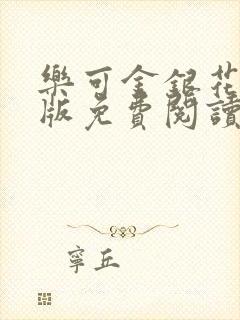 樂可金銀花
版免費閱讀
寧丘